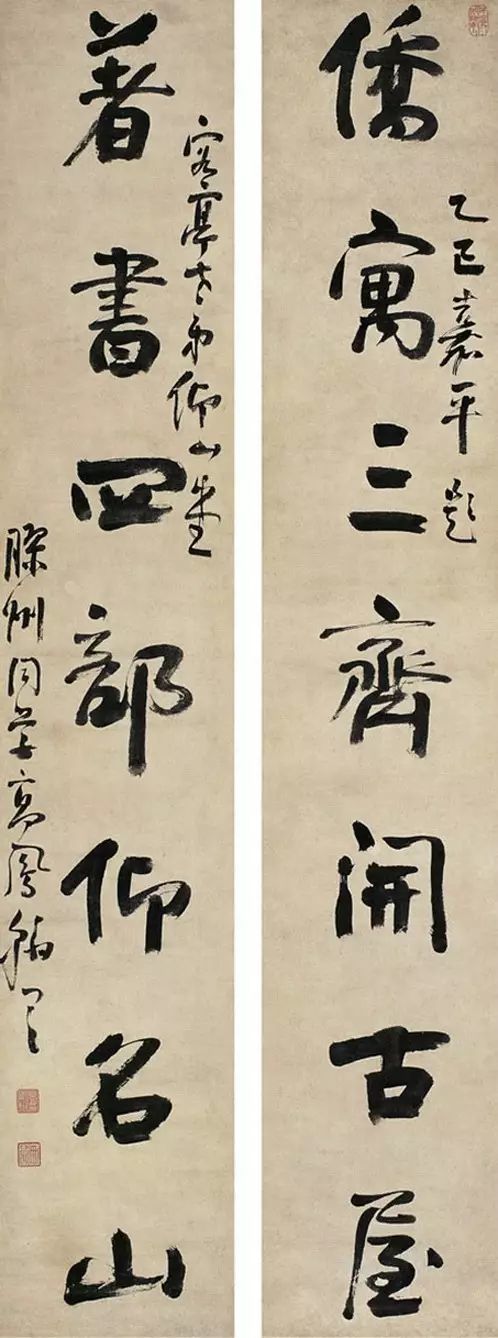 乙巳嘉平題
僑寓三齊開古屋
亭老弟仰山堂
著書四部仰名山
膠州同學高鳳翰